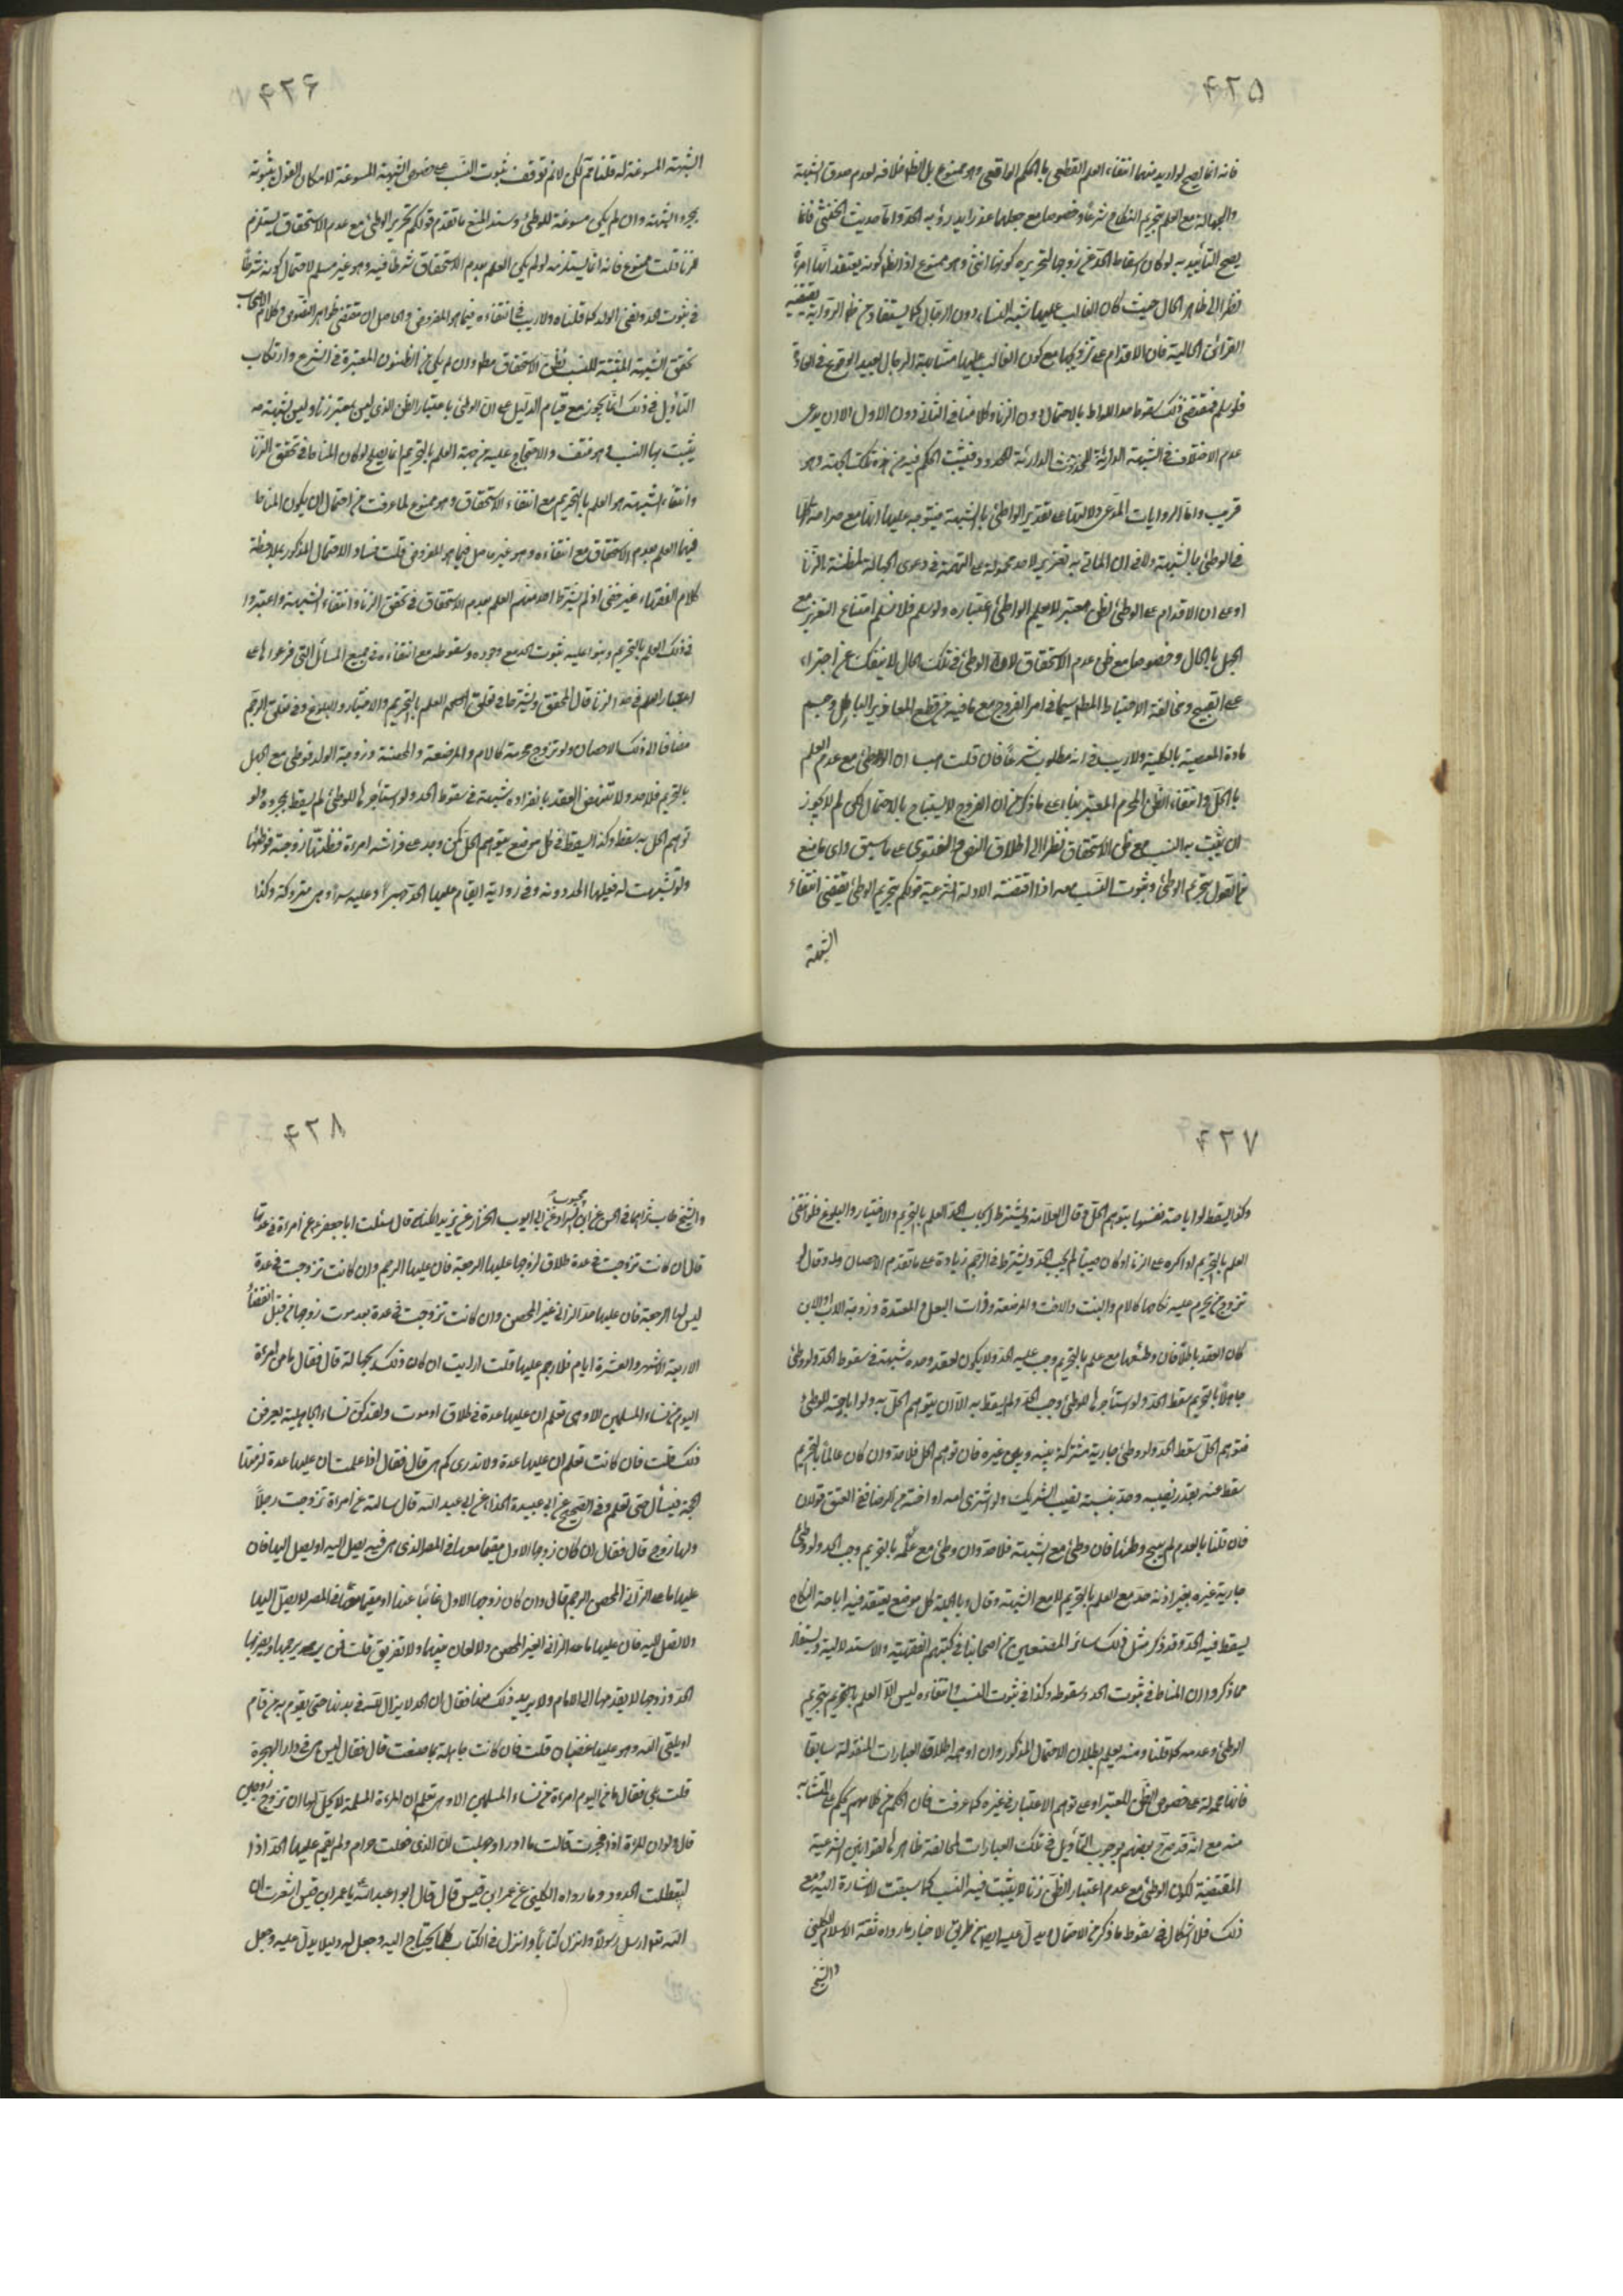 ۴۲۵
فانه انما يصح لو اريد منهما انتفاء العلم القطعى بالحكم الواقعى وهو ممنوع بل الظ خلافه لعدم صدق الشبهة
والجهالة مع العلم بتحريم النكاح شرعا وخصوصا مع جعلها عذرا يدرؤ به الحد واما حديث الخنثى فانما
يصح التأييد به لو كان اسقاط الحد عن زوجها لتحريره كونها انثى وهو ممنوع اذ الظ كونه يعتقد انها امرءة
نظرا الى ظاهر الحال حيث كان الغالب عليها شبه النساء دون الرجال كما يستفاد من ظ الرواية يقتضيه
القرائن الحالية فان الاقدام على تزويجها مع كون الغالب عليها مشابهة الرجال بعيد الوقوع فى العادة
فلو سلم فمقتضى ذلك سقوط حد اللواط بالاحتمال دون الزنا وكلامنا فى الثانى دون الاول الا ان يدعى
عدم الاختلاف فى الشبهة الدارئة للحدود فيثبت الحكم فيه من هذه تلك الجهة وهو
قريب واما الروايات المدعى دلالتها على تعذير الواطئ بالشبهة فيتوجه عليها انها مع صراحة كلها
فى الوطئ بالشبهة ولا فى ان الماتى به تعزير لا حد محمولة على التهمة فى دعوى الجهالة لمظنة بالزنا
او على ان الاقدام على الوطئ لظن معتبر لا يعلم الواطئ اعتباره ولو سلم فلا نسلم امتناع التعزير مع
الجهل بالحال وخصوصا مع ظن عدم الاستحقاق لان الوطئ فى تلك الحال لا ينفك عن اجتراء
على القبيح ومخالفة الاحتياط المط سيما فى امر الفروج مع ما فيه من قطع المعاذير الباطل وحسم
مادة المعصية بالكلية ولا ريب فى انه مطلوب شرعا فان قلت هب ان الوطئ مع عدم العلم
بالحل وانتفاء الظن المحرم المعتبر بناء على ما ذكر من ان الفروج لا يستباح بالاحتمال لكن لم لا يجوز
ان يثبت به النسب مع ظن الاستحقاق نظرا الى اطلاق النص والفتوى على ما سبق واى مانع
من القول بتحريم الوطئ وثبوت النسب معه اذا اقتضته الادلة الشرعية قولكم بتحريم الوطئ يقتضى انتفاء
الشبهة
۴۲۶
الشبهة المسوغة له قلنا نعم لكن لا نم توقف ثبوت النسب على خصوص الشبهة المسوغة لامكان القول بثبوته
بمجرد الشبهة وان لم يكن مسوغة للوطئ وسند المنع ما تقدم قولكم تحريم الوطئ مع عدم الاستحقاق يستلزم
الزنا قلت ممنوع فانه انما يستلزمه لو لم يكن العلم بعدم الاستحقاق شرطا فيه وهو غير مسلم لاحتمال كونه شرطا
فى ثبوت الحد ونفى الولد كما قلناه ولا ريب فى انتفاءه فيما هو المفروض والحاصل ان مقتضى ظواهر الفتوى وكلام الاصحاب
تحقق الشبهة المثبتة للنسب بظن الاستحقاق مط وان لم يكن من الظنون المعتبرة فى الشرع وارتكاب
التأويل فى ذلك انما يجوز مع قيام الدليل على ان الوطئ باعتبار الظن الذى ليس بمعتبر زنا وليس بشبهة مه
يثبت بها النسب وهو منتف والاحتجاج عليه من جهة العلم بالتحريم انما يصلح لو كان المناط فى تحقق الزنا
وانتفاء الشبهة هو العلم بالتحريم مع انتفاء الاستحقاق وهو ممنوع لما عرفت من احتمال ان يكون المناط
فيها العلم بعدم الاستحقاق مع انتفاءه وهو غير حاصل فيما هو المفروض قلت فساد الاحتمال المذكور بملاحظة
كلام الفقهاء غير خفى اذ لم يشترط احد منهم العلم بعدم الاستحقاق فى تحقق الزنا وانتفاء الشبهة واعتبروا
فى ذلك العلم بالتحريم وبنوا عليه ثبوت الحد مع وجوده وسقوطه مع انتفاءه فى جميع المسائل التى فرعوها على
اعتبار العلم فى حد الزنا قال المحقق ويشترط فى تعلق الحكم العلم بالتحريم والاختيار والبلوغ وفى تعلق الرجم
مضافا الى ذلك الاحصان ولو تزوج محرمة كالام والمرضعة والمحصنة وزوجة الولد فوطى مع الجهل
بالتحريم فلا حد ولا تنهض العقد بانفراده شبهة فى سقوط الحد ولو استأجرها للوطئ لم يسقط بمجرده ولو
توهم الحل به سقط وكذا يسقط فى كل موضع يتوهم الحل كمن وجد على فراشه امرءة فظنها زوجته فوطئها
ولو تشبهت له فعليها الحد دونه وفى رواية يقام عليها الحد جهرا وعليه سرا وهى متروكة وكذا
۴۲۷
وكذا يسقط لو اباحته نفسها بتوهم الحل وقال العلامة ويشترط ايجاب الحد العلم بالتحريم والاختيار والبلوغ فلو انتفى
العلم بالتحريم او اكره على الزنا او كان صبيا لم يجب الحد ويشترط فى الرجم زيادة على ما تقدم الاحصان وقد قال لو
تزوج من يحرم عليه نكاحها كالام والبنت والاخت والمرضعة وذات البعل والمعتدة وزوجة الاب او الابن
كان العقد باطلا فان وطئها مع علمه بالتحريم وجب عليه الحد ولا يكون العقد وحده شبهة فى سقوط الحد ولو وطئ
جاهلا بالتحريم سقط الحد ولو استأجرها للوطئ وجب الحد ولم يسقط به الا ان يتوهم الحل به ولو اباحته الوطئ
فتوهم الحل سقط الحد ولو وطئ جارية مشتركة بينه وبين غيره فان توهم الحل فلا حد وان كان عالما بالتحريم
سقط عنه بقدر نصيبه وحد بنسبة نصيب الشريك ولو اشترى امه او اخته من الرضاع ففى العتق قولان
فان قلنا بالعدم لم يبح وطئها فان وطئ مع الشبهة فلا حد وان وطئ مع علمه بالتحريم وجب الحد ولو وطئ
جارية غيره بغير اذنه حد مع العلم بالتحريم لا مع الشبهة وقال وبالجملة كل موضع يعتقد فيه اباحة النكاح
يسقط فيه الحد وقد ذكر مثل ذلك سائر المصنفين من اصحابنا فى كتبهم الفقهية والاستدلالية ويستفاد
مما ذكروا ان المناط فى ثبوت الحد وسقوطه وكذا فى ثبوت النسب وانتفاءه ليس الا العلم بالتحريم بتحريم
الوطئ وعدمه كما قلنا ومنه يعلم بطلان الاحتمال المذكور وان اوهمه اطلاق العبارات المنقولة سابقا
فانها محمولة على خصوص الظن المعتبر او على توهم الاعتبار فى غيره كما عرفت فان الحكم من كلامهم يحكم على المتشابه
منه مع انه قد صرح بعضهم بوجوب التأويل فى تلك العبارات لمخالفة ظاهرها لقوانين الشرعية
المقتضية لكون الوطئ مع عدم اعتبار الظن زنا لا يثبت فيه النسب كما سبقت الاشارة اليه ومع
ذلك فلا اشكال فى سقوط ما ذكر من الاحتمال ويدل عليه ايضا من طريق الاخبار ما رواه ثقة الاسلام الكلينى
والشيخ
۴۲۸
والشيخ طاب ثراهما فى الحسن عن ابن محبوب عن ابى ايوب الخزاز عن يزيد الكناسى قال سئلت ابا جعفر ع عن امراة فى عدتها
قال ان كانت تزوجت فى عدة طلاق لزوجها عليها الرجعة فان عليها الرجم وان كانت تزوجت فى عدة
ليس لها الرجعة فان عليها حد الزانى غير المحصن وان كانت تزوجت فى عدة بعد موت زوجها من قبل انقضاء
الاربعة الاشهر والعشرة ايام فلا رجم عليها قلت ارايت ان كان ذلك بجهالة قال فقال ما من امرءة
اليوم من نساء المسلمين الا وهى تعلم ان عليها عدة فى طلاق او موت ولقد كن نساء الجاهلية يعرفن
ذلك قلت فان كانت تعلم ان عليها عدة ولا تدرى كم هى قال فقال اذا علمت ان عليها عدة لزمتها
الحجة فتسأل حتى تعلم وفى الصحيح عن ابى عبيدة الحذاء عن ابى عبد الله قال سالته عن امراة تزوجت رجلا
ولها زوج قال فقال ان كان زوجها الاول مقيما معها فى المصر الذى هى فيه يصل اليه او يصل اليها فان
عليها ما على الزانى المحصن الرجم قال وان كان زوجها الاول غائبا عنها او مقيما معها فى المصر لا يصل اليها
ولا تصل اليه فان عليها ما على الزانى الغير المحصن ولا لعان بينهما ولا تفريق قلت فمن يرجمها ويضربها
الحد وزوجها لا يقدمها الى الامام ولا يريد ذلك منها فقال ان الحد لا يزال لله فى بدنها حتى يقوم به من قام
او يلقى الله وهو عليها غضبان قلت فان كانت جاهلة بما صنعت قال فقال اليس هى فى دار الهجرة
قلت بلى فقال ما من اليوم امرءة من نساء المسلمين الا وهى تعلم ان المرءة المسلمة لا يحل لها ان تزوج زوجين
قال ولو ان المرءة اذا فجرت قالت ما ادر او جهلت ان الذى فعلت حرام ولم يقم عليها الحد اذا
لتعطلت الحدود وما رواه الكلينى عن عمر ابن قيس قال قال ابو عبد الله يا عمر ابن قيس اشعرت ان
الله تعالى ارسل رسولا وانزل كتابا وانزل فى الكتاب كلما يحتاج اليه وجعل له دليلا يدل عليه وجعل